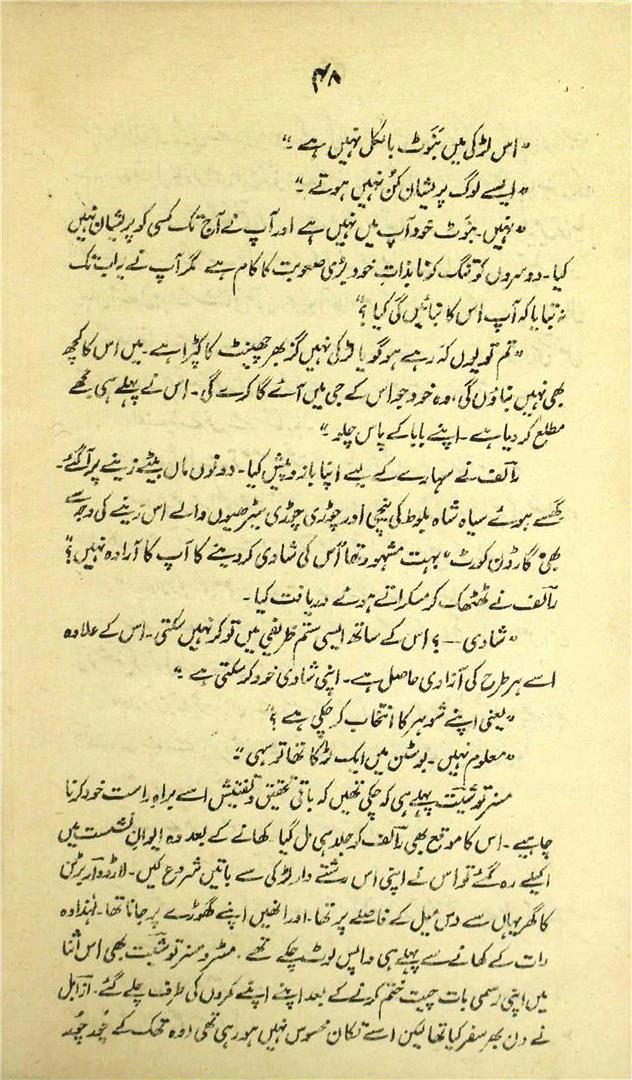 ۴۸
"اس لڑکی میں بنوٹ بالکل نہیں ہے۔"
"ایسے لوگ پریشان کُن نہیں ہوتے۔"
"نہیں۔ بنوٹ خود آپ میں نہیں ہے اور آپ نے آج تک کسی کو پریشان نہیں
کیا۔ دوسروں کو تنگ کرنا بذاتِ خود بڑی صعوبت کا کام ہے مگر آپ نے یہ اب تک
نہ بتایا کہ آپ اس کا بنائیں گی کیا؟"
"تم تو یوں کہہ رہے ہو گویا لڑکی نہیں گز بھر چھینٹ کا کپڑا ہے۔ میں اس کا کچھ
بھی نہیں بناؤں گی، وہ خود جو اس کے جی میں آئے گا کرے گی۔ اس نے پہلے ہی مجھے
مطلع کر دیا ہے۔ اپنے بابا کے پاس چلو۔"
رالف نے سہارے کے لیے اپنا بازو پیش کیا۔ دونوں ماں بیٹے زینے پر آ گئے۔
گھسے ہوئے سیاہ شاہ بلوط کی نیچی اور چوڑی چوڑی سیڑھیوں والے اس زینے کی وجہ سے
بھی "گارڈن کورٹ" بہت مشہور تھا "اُس کی شادی کر دینے کا آپ کا ارادہ نہیں؟"
رالف نے ٹھٹھک کر مسکراتے ہوئے دریافت کیا۔
"شادی —؟ اس کے ساتھ ایسی ستم ظریفی میں تو کر نہیں سکتی۔ اس کے علاوہ
اسے ہر طرح کی آزادی حاصل ہے۔ اپنی شادی خود کر سکتی ہے۔"
"یعنی اپنے شوہر کا انتخاب کر چکی ہے؟"
"معلوم نہیں۔ بوسٹن میں ایک لڑکا تھا تو سہی۔"
مسز توشیٹ پہلے ہی کہہ چکی تھیں کہ باقی تحقیق و تفتیش اسے براہِ راست خود کرنا
چاہیے۔ اس کا موقع بھی رالف کو جلد ہی مل گیا۔ کھانے کے بعد وہ ایوانِ نشست میں
اکیلے رہ گئے تو اس نے اپنی اس رشتے دار لڑکی سے باتیں شروع کیں۔ لارڈ واربرٹن
کا گھر یہاں سے دس میل کے فاصلے پر تھا۔ اور انھیں اپنے گھوڑے پر جانا تھا۔ لہٰذا وہ
رات کے کھانے سے پہلے ہی واپس لوٹ چکے تھے۔ مسٹر و مسز توشیٹ بھی اس اثنا
میں اپنی رسمی بات چیت ختم کرنے کے بعد اپنے اپنے کمروں کی طرف چلے گئے۔ ازابل
نے دن بھر سفر کیا تھا لیکن اسے تکان محسوس نہیں ہو رہی تھی (وہ تھک کے چُور چُور